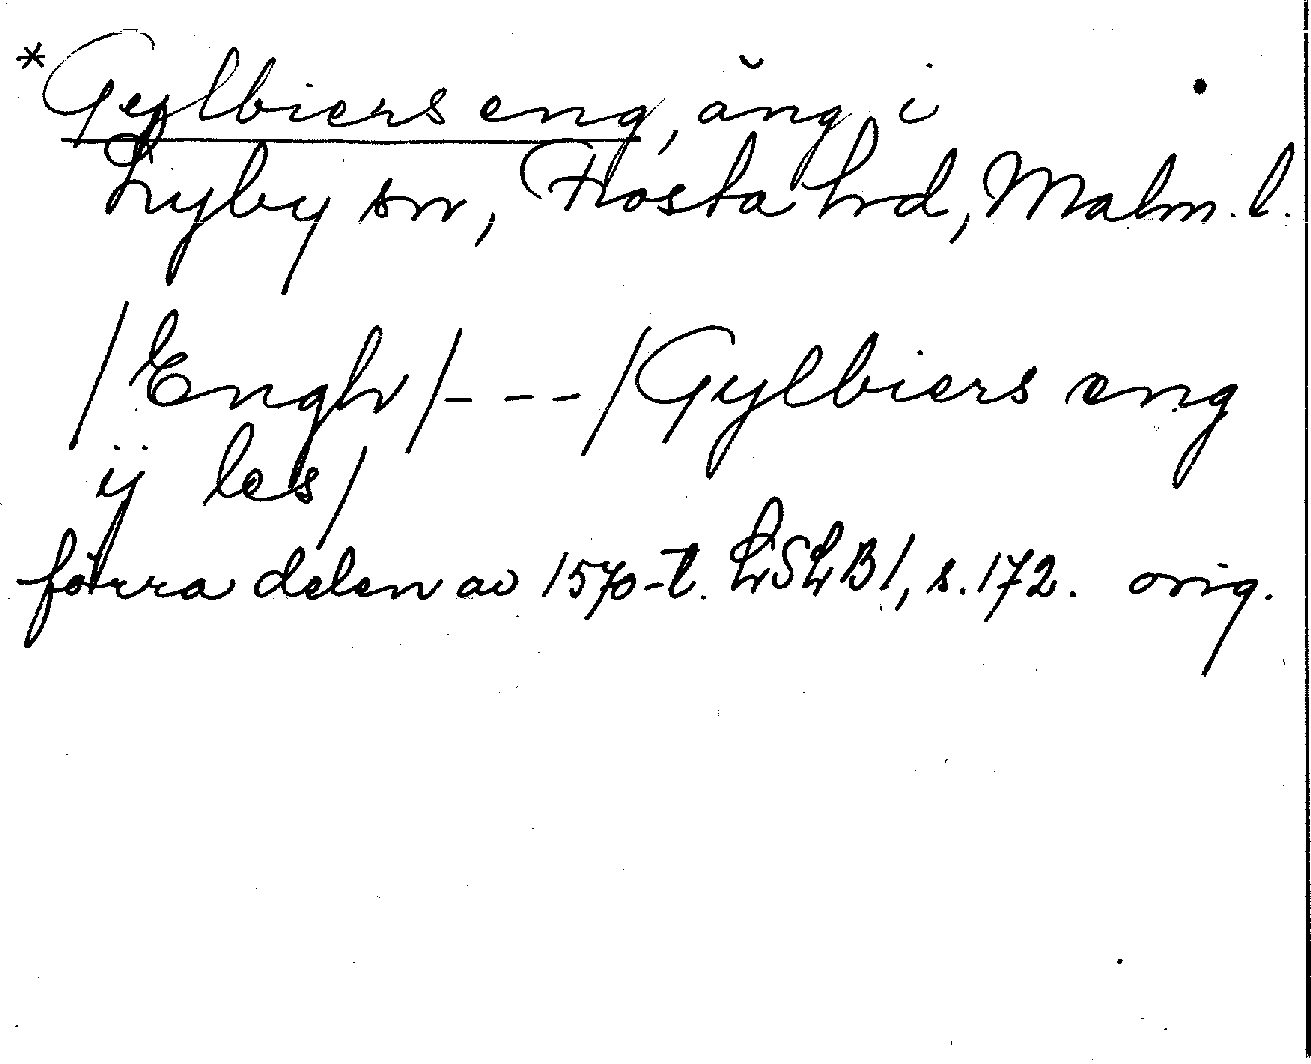 *Gylbiers eng, äng i
Lyby sn, Frosta hrd, Malm. l.
/Engh/---/Gylbiers eng
ij les/
förra delen av 1570-t. LSLB1, s. 172. orig.